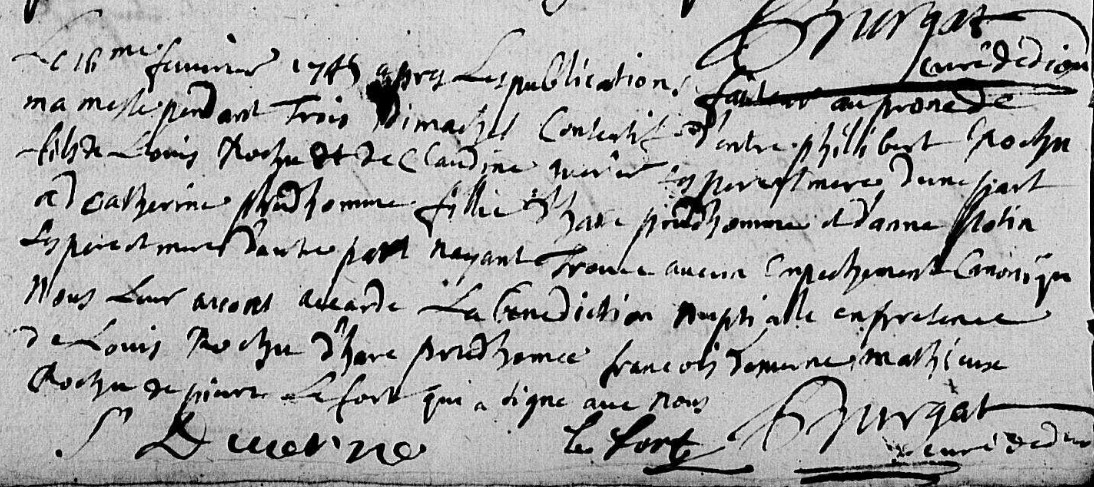 Burgat
curé dedion
Le 16me feuvrier 1745 apres Les publications faittes au prone de
ma messe pendant Trois dimaches Consecutif d'entre philibert Rochu
fils de Louis Rochu et de Claudine Les pere et mere d'une part
et Catherine prudhomme fille d' prudhomme et d'anne
Les pere et mere d'autre part nayant Trouve aucun Enpechement Canoniqu
Nous Leur avons accorde La benediction nuptialle en presence
de Louis Rochu prudhomee francois mathieux
Rochu de pierre Le fort qui a signe avec nous
f Ducerne le fort Burgat
curé de